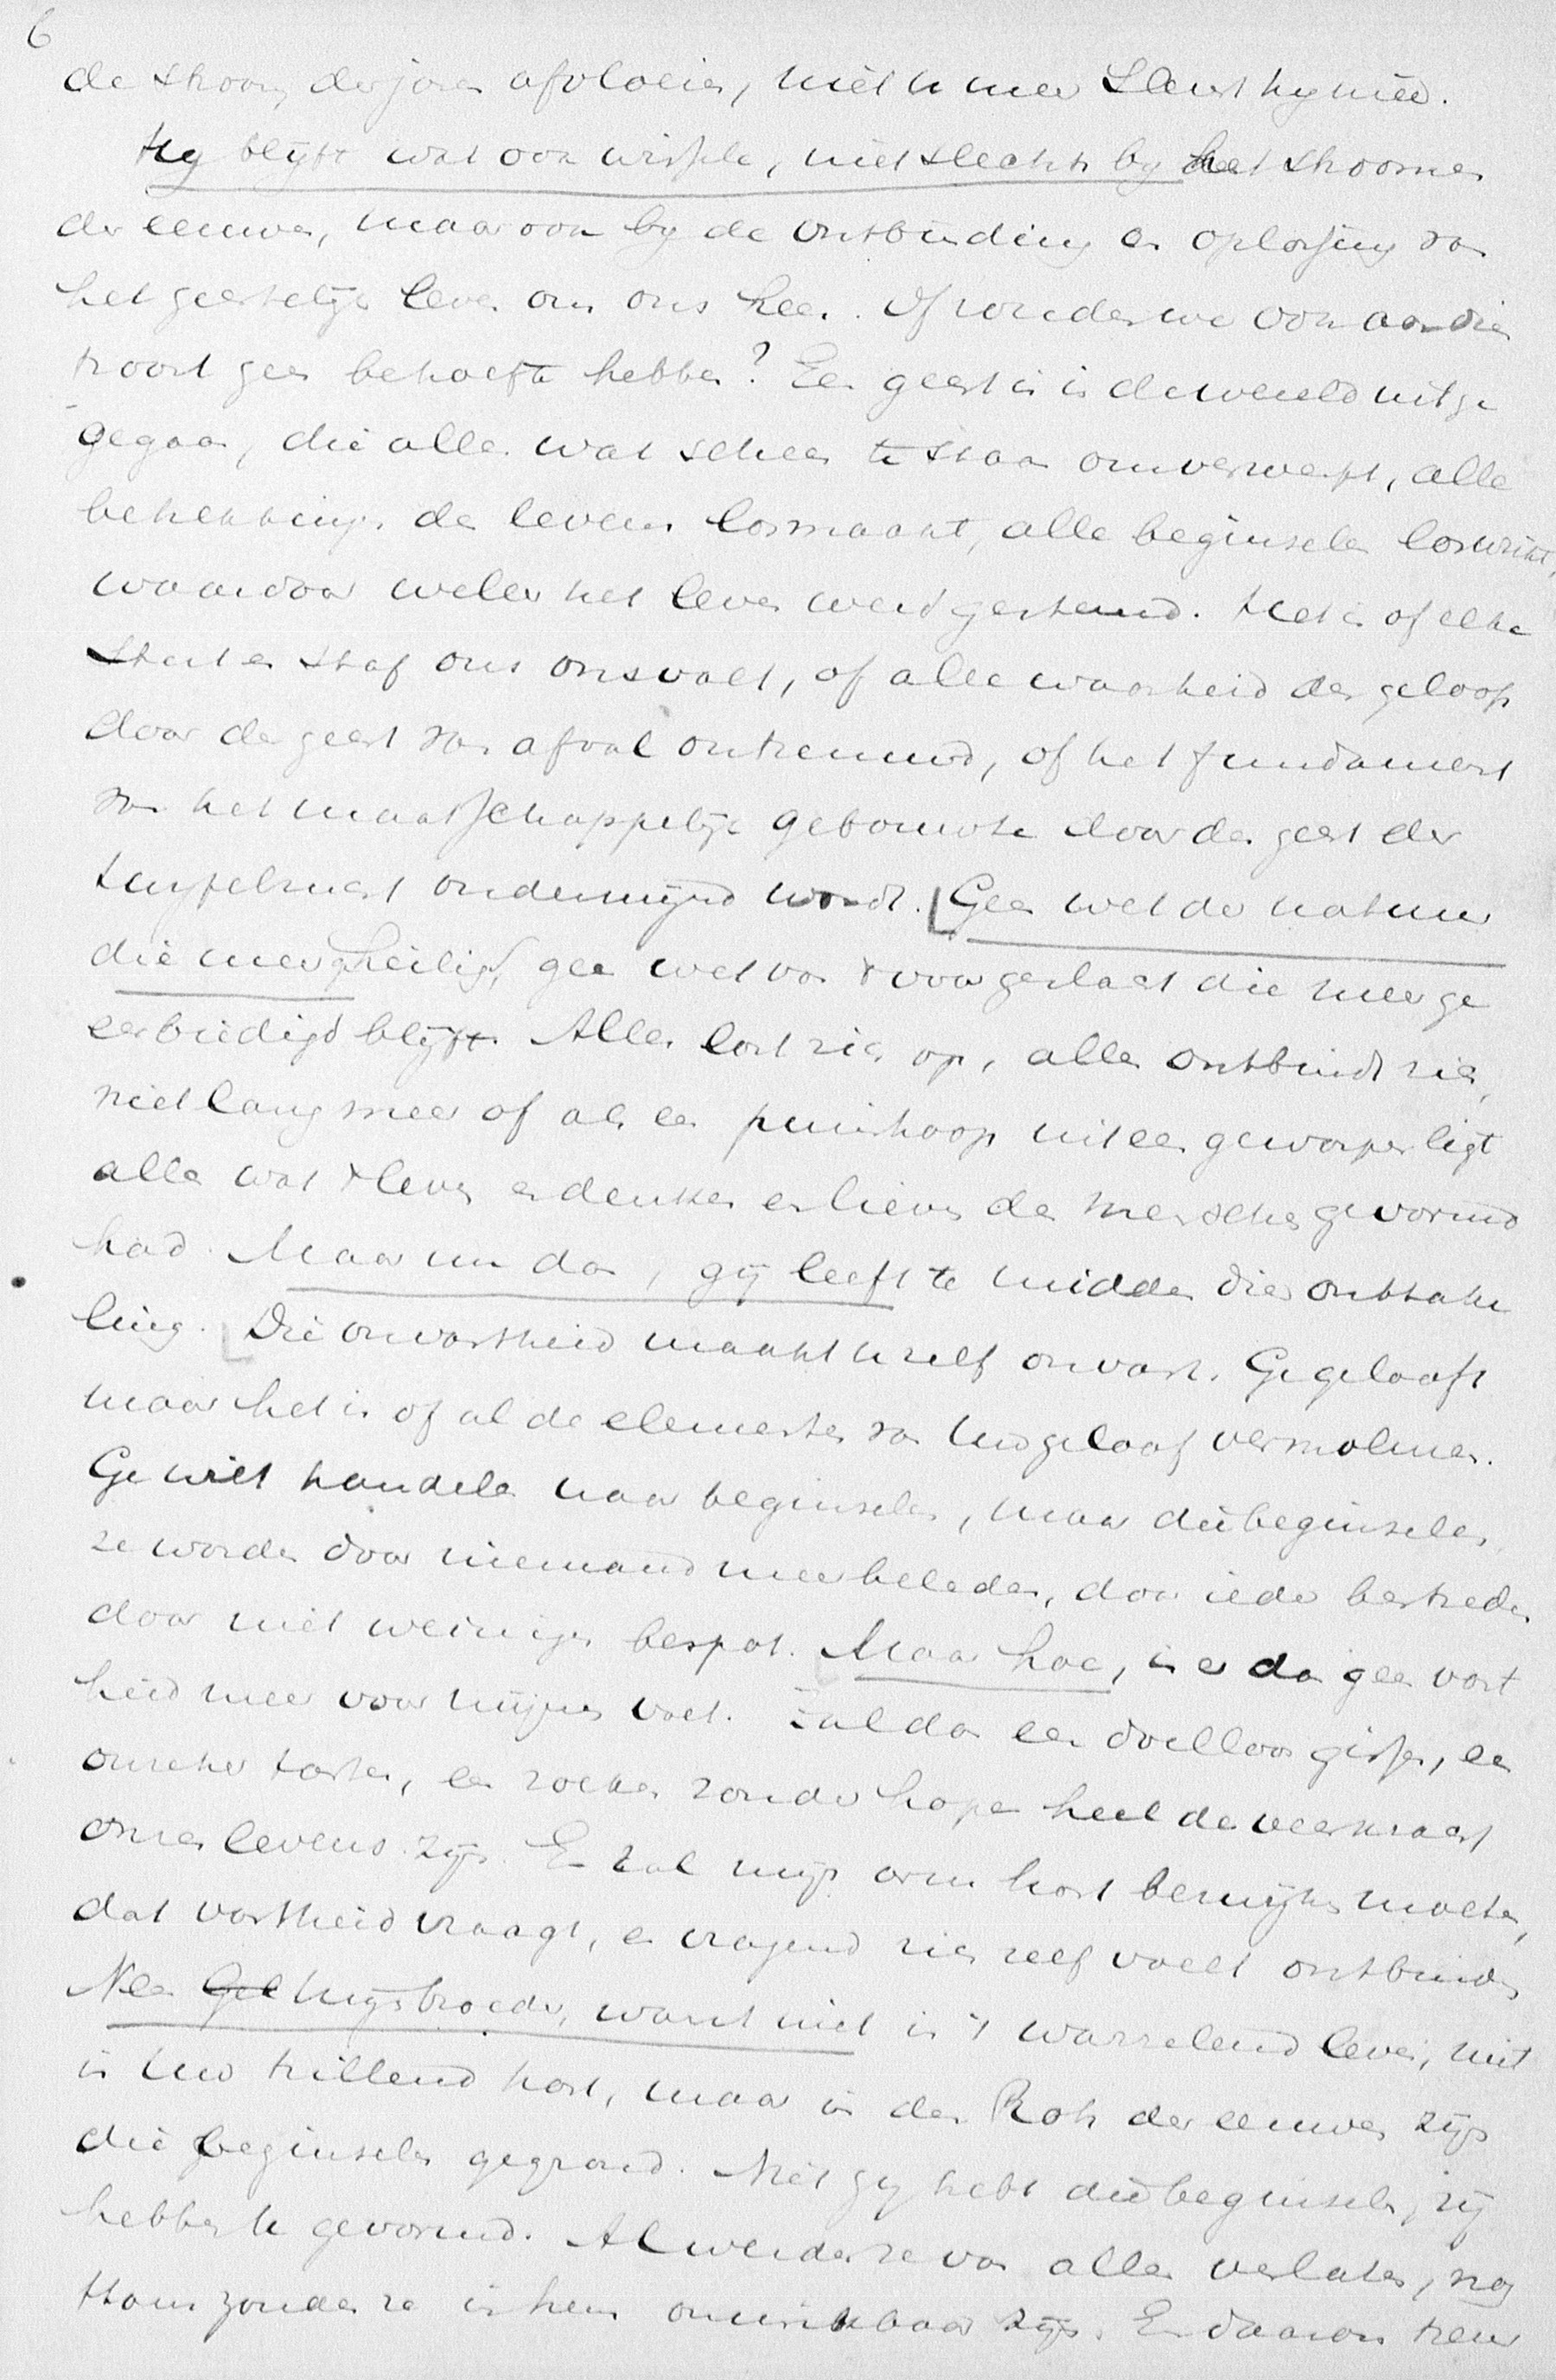 6
de stroom der jaren afvloeien, niet u meer sleurt hij meê.
Hij blijft wat ook wissele, niet slechts bij het stroomen
der eeuwen, maar ook bij de ontbinding en oplossing van
het geestelijk leven om ons heen. Of zouden we ook aan dien
troost geen behoefte hebben? Een geest is in de wereld uitge
gegaan, die alles wat scheen te staan omverwerpt, alle
betrekkingen des levens losmaakt, alle beginselen loswrikt,
waardoor weleer het leven werd gesteund. Het is of elke
stut en staf ons ontvalt, of alle waarheid des geloofs
door de geest van afval ontzenuwd, of het fundament
van het maatschappelijk gebouw door den geest der
twijfelzucht ondermijnd wordt. Geen wet der natuur
die meer geheiligd, geen wet van 't voorgeslacht die meer ge
eerbiedigd blijft. Alles lost zich op, alles ontbindt zich,
niet lang meer of als een puinhoop uiteen geworpen ligt
alles wat 't leven en denken en lieven der menschen gevormd
had. Maar nu dan, gij leeft te midden dier ontstake
ling. Die onvastheid maakt u zelf onvast. Ge gelooft
maar het is of al de elementen van uw geloof vermolmen.
Ge wilt handelen naar beginselen, maar die beginselen,
ze worden door niemand meer beleden, door ieder bestreden
door niet weinigen bespot. Maar hoe, is er dan geen vast
heid meer voor mijnen voet. Zal dan een doelloos gissen, een
onzeker tasten, een zoeken zonder hope heel de veerkracht
onzes levens zijn. En zal mijn arm hart bezwijken moeten,
dat vastheid vraagt, en vragend zich zelf voelt ontbinden
Neen Gel mijn broeder, want niet in 't warrelend leven, niet
in uw trillend hart, maar in den Rots der eeuwen zijn
die beginselen gegrond. Niet gij hebt die beginselen, zij
hebben u gevormd. Al werden ze van allen verlaten, nog
thans zouden ze in hem onwrikbaar zijn. En daarom treur